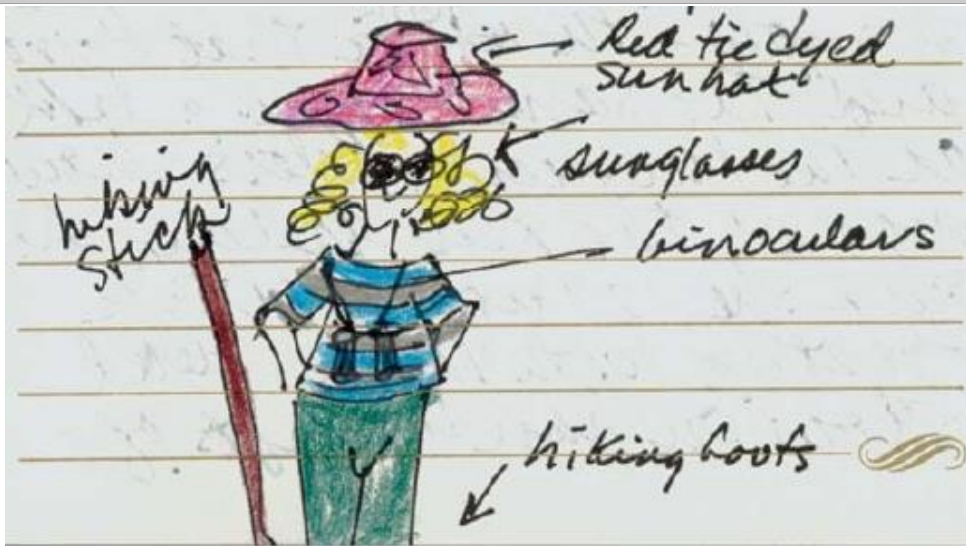 Red tie dyed
sun hat
sunglasses
hiking
stick
binoculars
hiking boots